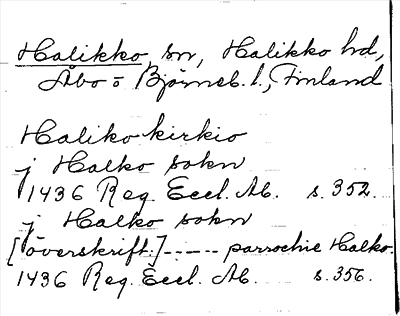 Halikko, sn, Halikko hd,
Åbo o Björneb. l., Finland
Haliko kirkio
j Halko sokn
1436 Reg. Eccl. Ab. s. 352.
j Halko sokn
[överskrift:] ----- parrochie Halko.
1436 Reg. Eccl. Ab. s. 356.